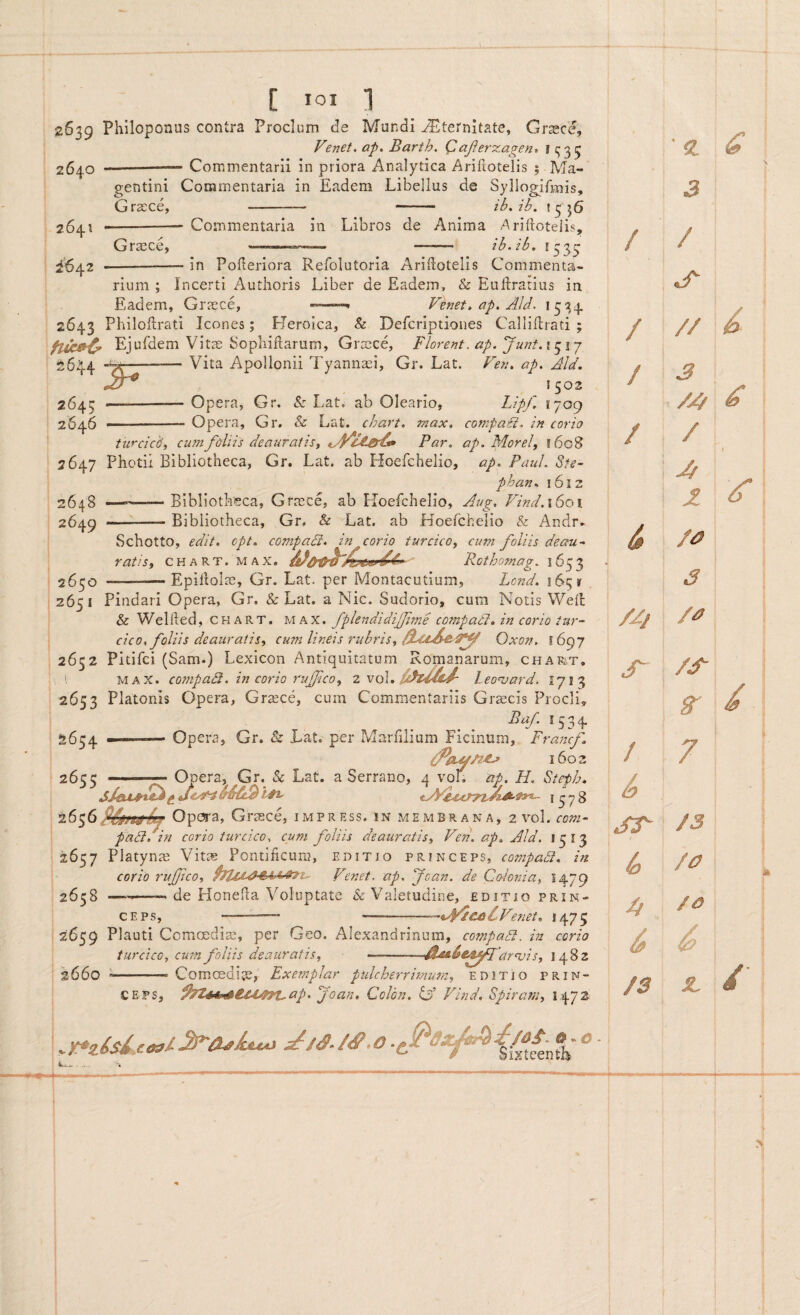 [ 101 ]
2639 Philoponus contra Proclum de Mundi Æternitate, Græcé,
Venet. ap. Barth. Caſterzagen. 1535 2 6
2640 ——— Commentarii in priora Analytica Ariſtotelis ; Ma-
gentini Commentaria in Eadem Libellus de Syllogiſmis,
Græcé, ——— —— ib. ib. 1536 3
2641 ——— Commentaria in Libros de Anima Ariſtotelis,
Græcé, ——— —— ib. ib. 1535 1 1
2642 ——— in Poſteriora Reſolutoria Ariſtotelis Commenta-
rium ; Incerti Authoris Liber de Eadem, & Euſtratius in
Eadem, Græcé, —— Venet. ap. Ald. 1534 5
2643 Philoſtrati Icones ; Heroica, & Deſcriptiones Calliſtrati ;
Ejuſdem Vitæ Sophiſtarum, Græcé, Florent. ap. Junt. 1517 1 11 6
2644 ——— Vita Apollonii Tyannæi, Gr. Lat. Ven. ap. Ald.
1502 1 3
2645 ——— Opera, Gr. & Lat. ab Oleario, Lipſ. 1709 14 6
2646 ——— Opera, Gr. & Lat. chart. max. compact. in corio
turcico, cum foliis deauratis, Par. ap. Morel, 1608 1 1
2647 Photii Bibliotheca, Gr. Lat. ab Hoeſchelio, ap. Paul. Ste-
phan. 1612 4
2648 —— Bibliotheca, Græcé, ab Hoeſchelio, Aug. Vind. 1601 2 6
2649 —— Bibliotheca, Gr. & Lat. ab Hoeſchelio & Andr.
Schotto, edit. opt. compact. in corio turcico, cum foliis deau-
ratis, CHART. MAX. Rothomag. 1653 6 10
2650 ——— Epiſtolæ, Gr. Lat. per Montacutium, Lond. 1651 3
2651 Pindari Opera, Gr. & Lat. a Nic. Sudorio, cum Notis Weſt
& Welſted, CHART. MAX. ſplendidiſſimé compact. in corio tur-
cico, foliis deauratis, cum lineis rubris, Oxon. 1697 14 10
2652 Pitiſci (Sam.) Lexicon Antiquitatum Romanarum, CHART.
MAX. compact. in corio ruſſico, 2 vol. Leovard. 1713 5 15
2653 Platonis Opera, Græcé, cum Commentariis Græcis Procli,
Baſ. 1534 8 6
2654 ——— Opera, Gr. & Lat. per Marſilium Ficinum, Francf.
Payne 1602 1 7
2655 ——— Opera, Gr. & Lat. a Serrano, 4 vol. ap. H. Steph.
1578 6
2656 ——— Opera, Græcé, IMPRESS. IN MEMBRANA, 2 vol. com-
pact. in corio turcico, cum foliis deauratis, Ven. ap. Ald. 1513 55 13
2657 Platynæ Vitæ Pontificum, EDITIO PRINCEPS, compact. in
corio ruſſico, Venet. ap. Joan. de Colonia, 1479 6 10
2658 —— de Honeſta Voluptate & Valetudine, EDITIO PRIN-
CEPS, —— —— Nicol Venet. 1475 4 10
2659 Plauti Comœdiæ, per Geo. Alexandrinum, compact. in corio
turcico, cum foliis deauratis, —— Tarvis, 1482 6 6
2660 —— Comœdiæ, Exemplar pulcherrimum, EDITIO PRIN-
CEPS, ap. Joan. Colon. & Vind. Spiram, 1472 13 2 6
Sixteenth